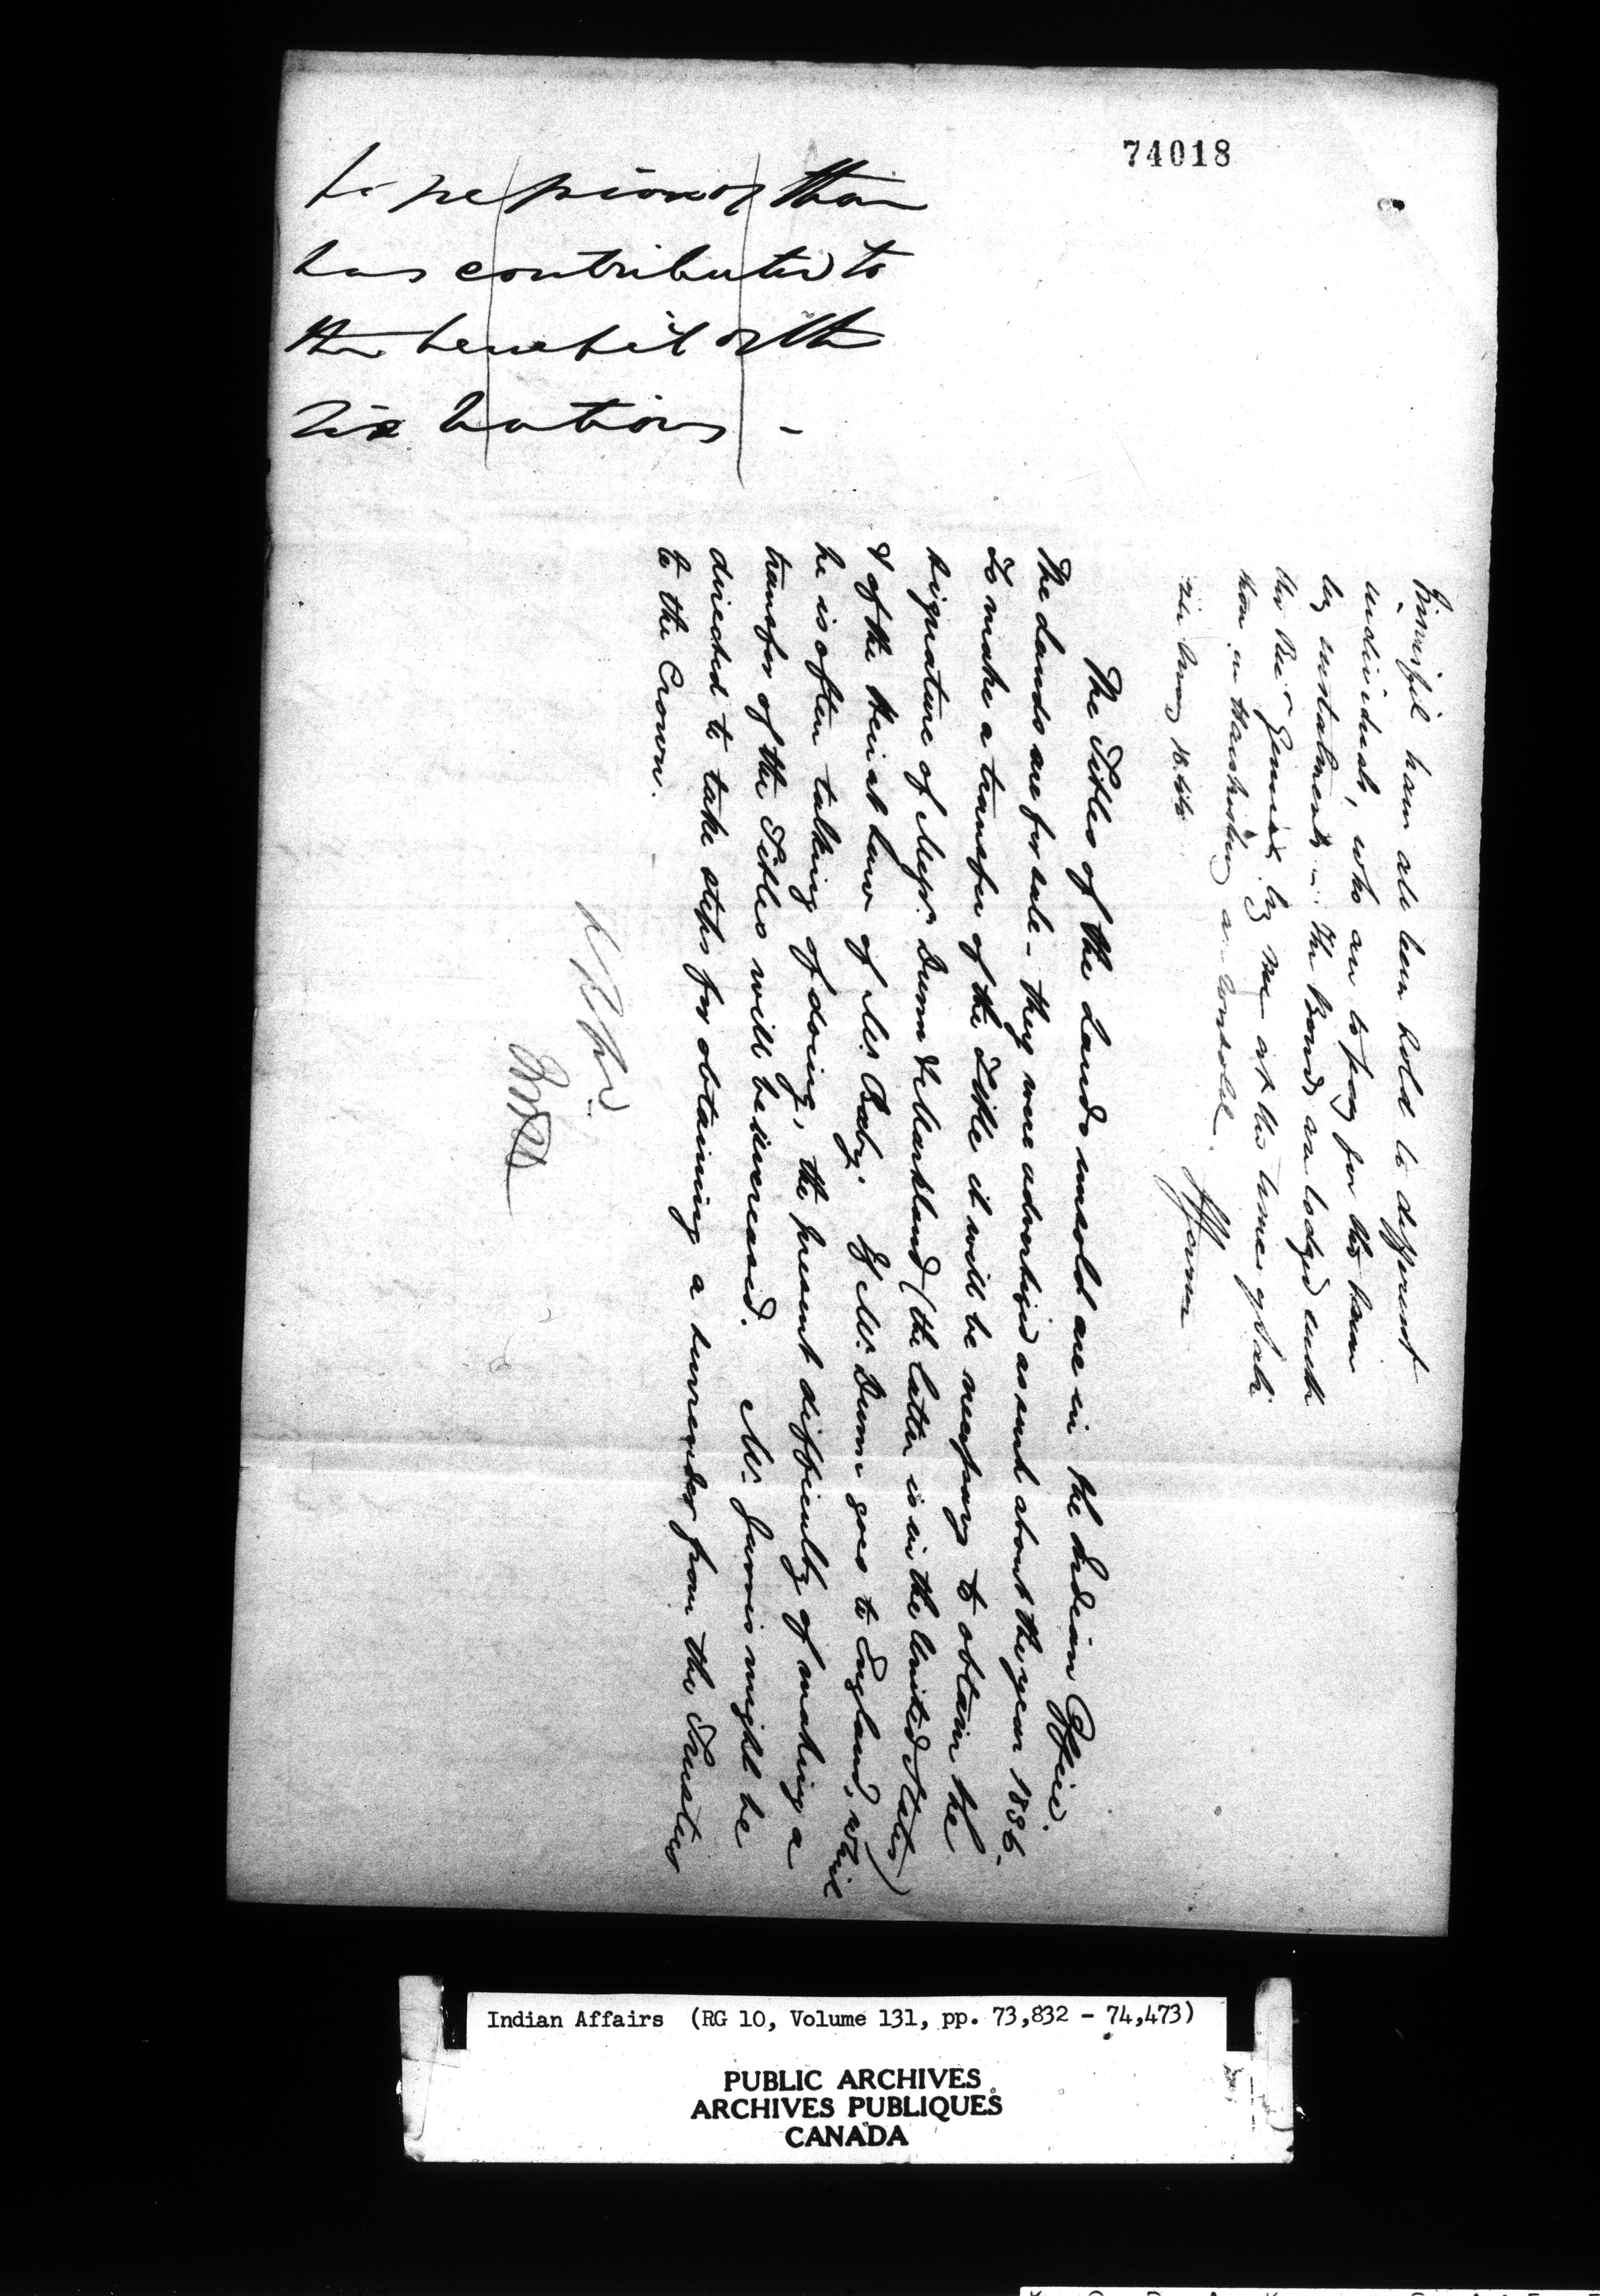 74018
has contributed to
the benefit of the
Six Nations -
have all been sold to different
individuals, who are to pay for the same
by instalments. The Bonds are lodged with
by me at the times of sale
S P Jarvis
The Titles of the Lands unsold are in the Indian Office.
The lands are for sale - they were advertized as such about the year 1836.
To make a transfer of the Title it will be necessary to obtain the
signature of Messrs. Dunn & Markland (the latter is in the United States)
& of the Heir at Law of Mr. Baby. If Mr. Dunn goes to England, which
he is often talking of doing, the present difficulty of making a
transfer of the Titles will be increased. Mr. Jarvis might be
directed to take steps for obtaining a surrender from the Trustees
to the Crown.
Indian Affairs (RG 10, Volume 131, pp. 73,832 - 74,473)
PUBLIC ARCHIVES
ARCHIVES PUBLIQUES
CANADA